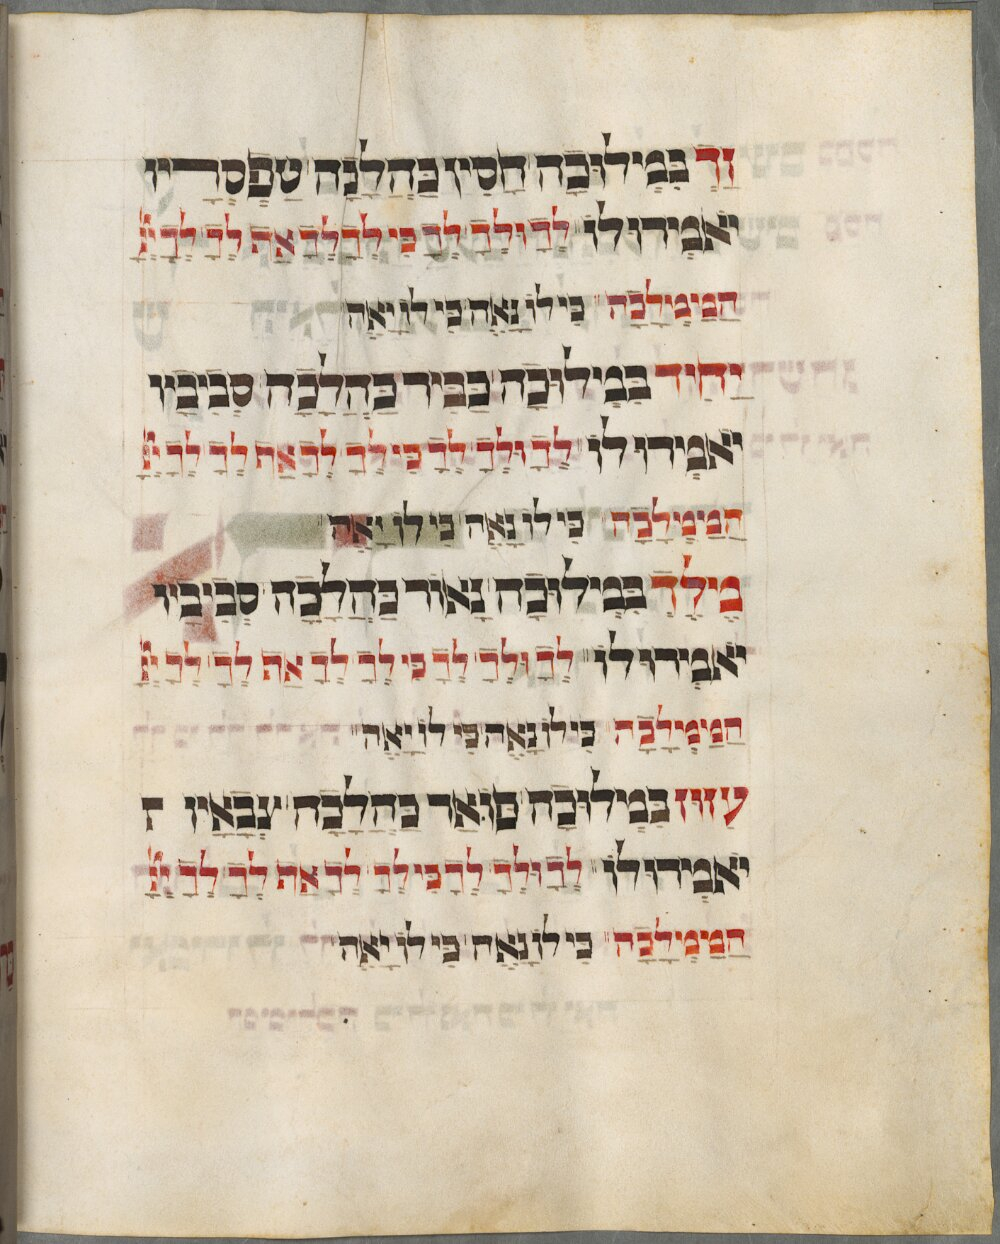 זך במילוכה חסין כהלכה טפסריו
יאמירו לו לך ולך לך כי לך לך אף לך לך יי
המימלכה כי לו נאה כי לו יאה
יחיד במילוכה כביר כהלכה סביביו
יאמירו לו לך ולך לך כי לך לך אף לך לך יי
המימלכה כי לו נאה כי לו יאה
מילך במילוכה נאור כהלכה סביביו
יאמירו לו לך ולך לך כי לך לך אף לך לך יי
המימלכה כי לו נאה כי לו יאה
עזוז במילוכה פואר כהלכה צבאיו
יאמירו לו לך ולך לך כי לך לך אף לך לך יי
המימלכה כי לו נאה כי לו יאה